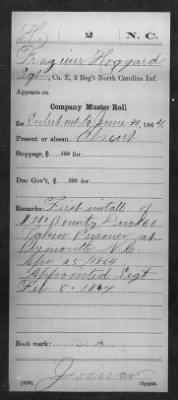 H | 2 | N.C.
Frazinier Hoggard
Sgt, Co. E, 2 Reg't North Carolina Inf.
Appears on
Company Muster Roll
for Enlistmt to June 30, 1864.
Present or absent Absent
Stoppage, $ 100 for
Due Gov't, $ 100 for
Remarks: First install of
Bounty Due $60
Taken Prisoner at
Plymouth N.C.
Apr 25 1864
Appointed Sergt
Feb 8. 1864
Book mark:
(858)
Copyist.